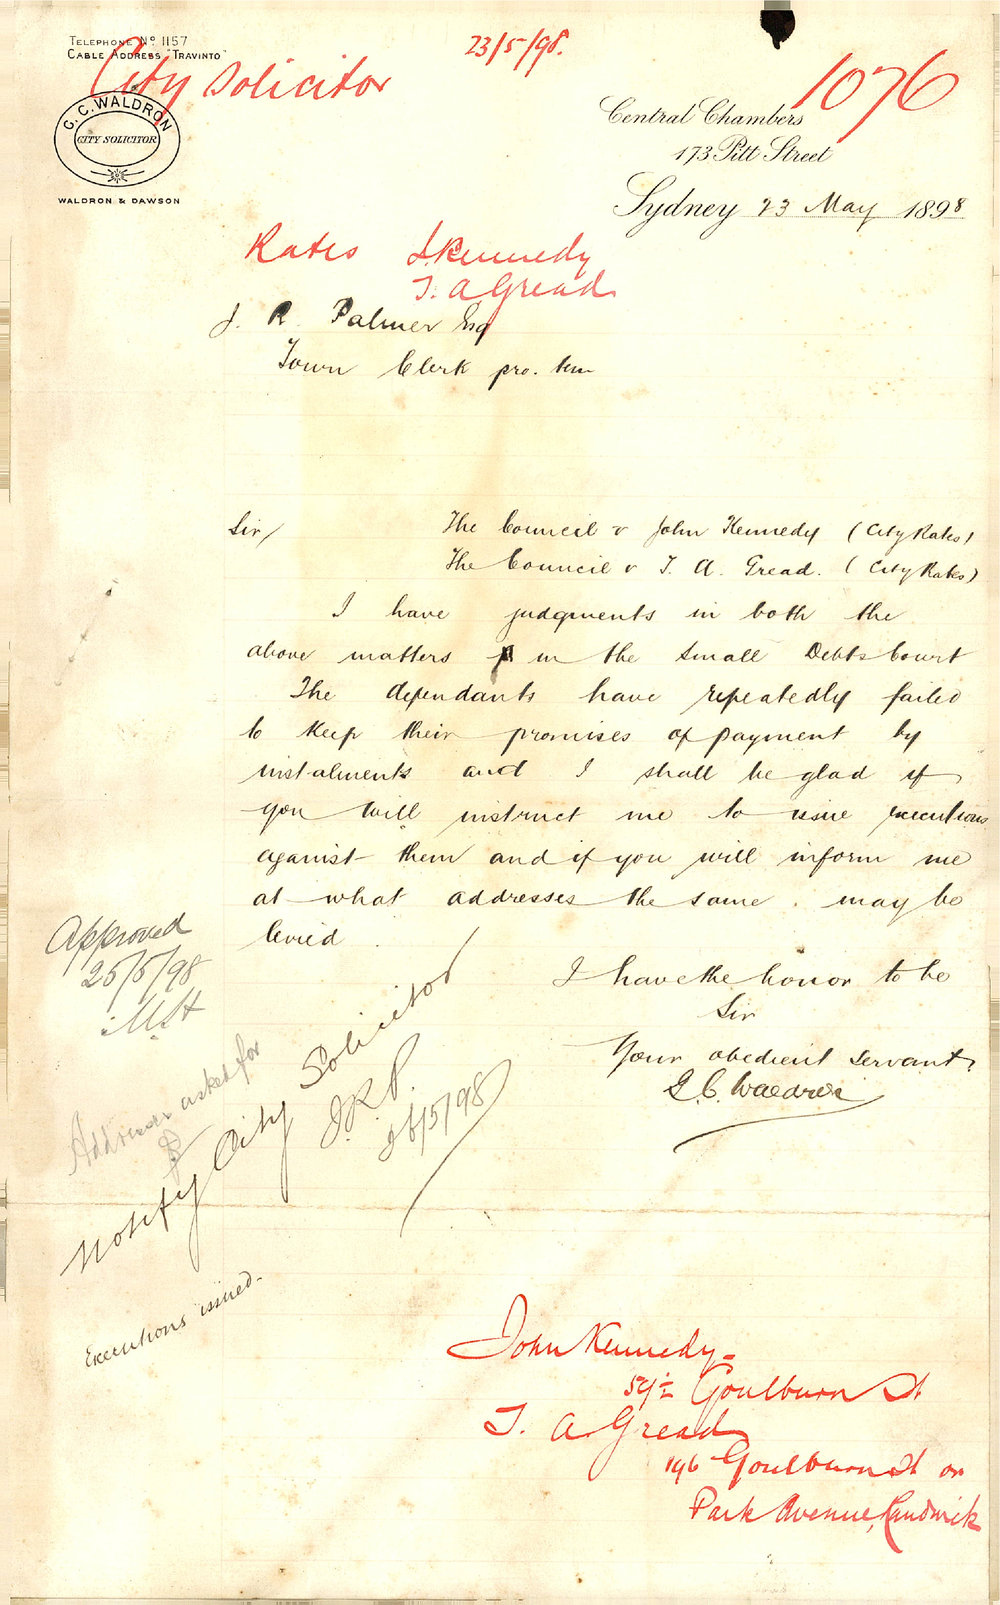 TELEPHONE No 1157
CABLE ADDRESS "TRAVINTO"
City Solicitor
23/5/98.
1076
G. C. WALDRON
CITY SOLICITOR
WALDRON & DAWSON
Central Chambers
173 Pitt Street
Sydney 23 May 1898
Rates J. Kennedy
T. A Gread
J. R. Palmer Esq
Town Clerk pro. tem
Sir/ The Council v John Kennedy (City Rates)
The Council v T. A. Gread. (City Rates)
I have judgments in both the
above matters in the Small Debts Court
The defendants have repeatedly failed
to keep their promises of payment by
instalments and I shall be glad if
you will instruct me to issue executions
against them and if you will inform me
at what addresses the same may be
levied.
I have the honor to be
Sir
Your obedient servant,
G. C. Waldron
Approved
25/5/98
Addresses asked for
Notify City Solicitor
J.R.P.
26/5/98
Executions issued.
John Kennedy
Goulburn St
T. A. Gread
196 Goulburn St or
Park Avenue, Randwick